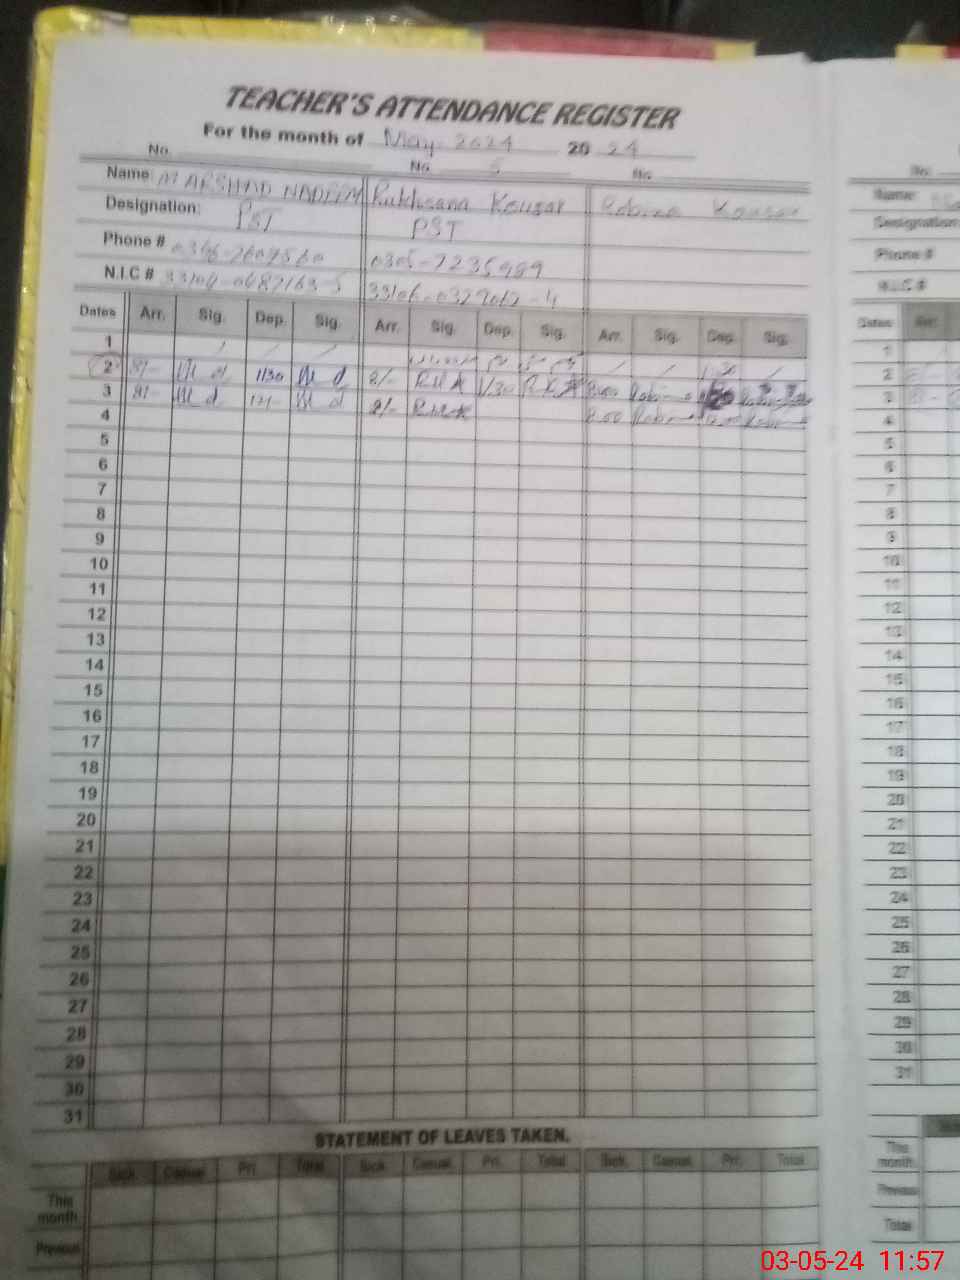 TEACHER'S ATTENDANCE REGISTER
For the month of May. 2024 20 24
No. No. 5 No.
Name M ARSHAD NADEEM Rukhsana Kousar Robina Kousar
Designation: PST PST
Phone # 0305-7235989
N.I.C #
Dates Arr. Sig. Dep. Sig. Arr. Sig. Dep. Sig. Arr. Sig. Dep. Sig.
1
2 8/- 1130 8/- R.U.K 1/30 R.K 8:00 Robina
3 8/- 12/- 8/- R.U.K 8.00 Robina
4
5
6
7
8
9
10
11
12
13
14
15
16
17
18
19
20
21
22
23
24
25
26
27
28
29
30
31
STATEMENT OF LEAVES TAKEN.
Sick. Casual. Pri. Total Sick. Casual. Pri. Total Sick. Casual. Pri. Total
This month
Previous
No.
Name:
Designation
Phone #
N.I.C #
Dates Arr.
1
2
3
4
5
6
7
8
9
10
11
12
13
14
15
16
17
18
19
20
21
22
23
24
25
26
27
28
29
30
31
This month
Previous
Total
03-05-24 11:57